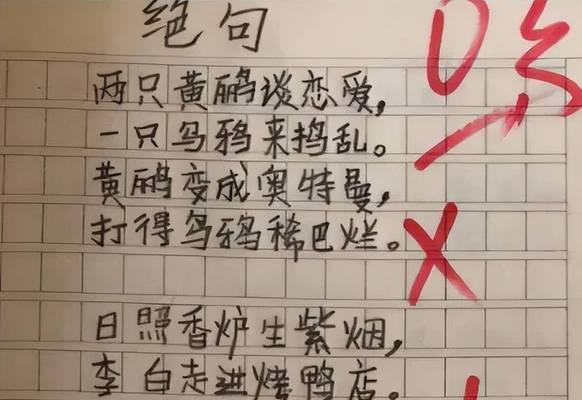 绝句
两只黄鹂谈恋爱,
一只乌鸦来捣乱。
黄鹂变成奥特曼,
打得乌鸦稀巴烂。
日照香炉生紫烟,
李白走进烤鸭店。